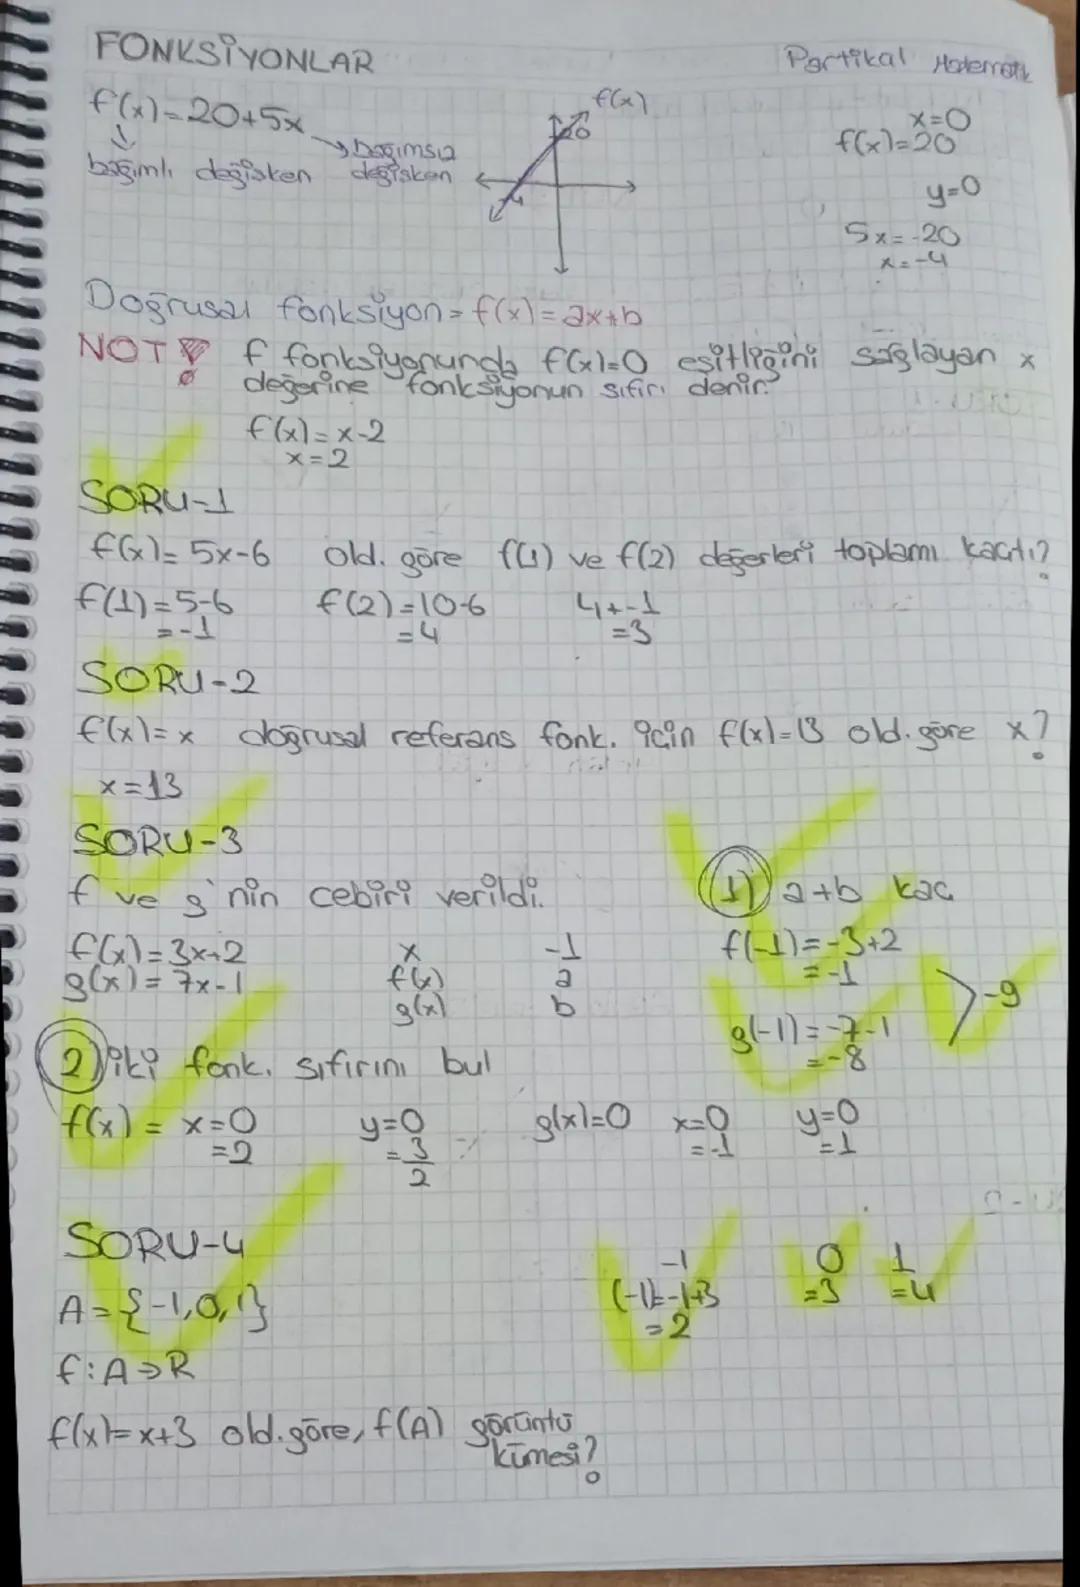 FONKSİYONLAR
Partikal Matematik
f(x)=20+5x
bağımlı değişken
bağımsız değişken
f(x)
20
-4
x=0
f(x)=20
y=0
5x=-20
x=-4
Doğrusal fonksiyon= f(x)=ax+b
NOT! f fonksiyonunda f(x)=0 eşitliğini sağlayan x
değerine fonksiyonun sıfırı denir.
f(x)=x-2
x=2
SORU-1
f(x)=5x-6 old. göre f(1) ve f(2) değerleri toplamı kaçtı?
f(1)=5-6 f(2)=10-6 4+-1
=-1 =4 =3
SORU-2
f(x)=x doğrusal referans fonk. için f(x)=13 old. göre x?
x=13
SORU-3
f ve g'nin cebiri verildi.
f(x)=3x+2 x -1
g(x)=7x-1 f(x) a
g(x) b
1) a+b kaç
f(-1)=-3+2
=-1
g(-1)=-7-1
=-8
-9
2) iki fonk. sıfırını bul
f(x)= x=0 y=0 g(x)=0 x=0 y=0
=2 =3/2 =-1 =1
SORU-4
A={-1,0,1}
f:A→R
f(x)=x+3 old.göre, f(A) görüntü
kümesi?
-1 0 1
(-1)=-1+3 =3 =4
=2